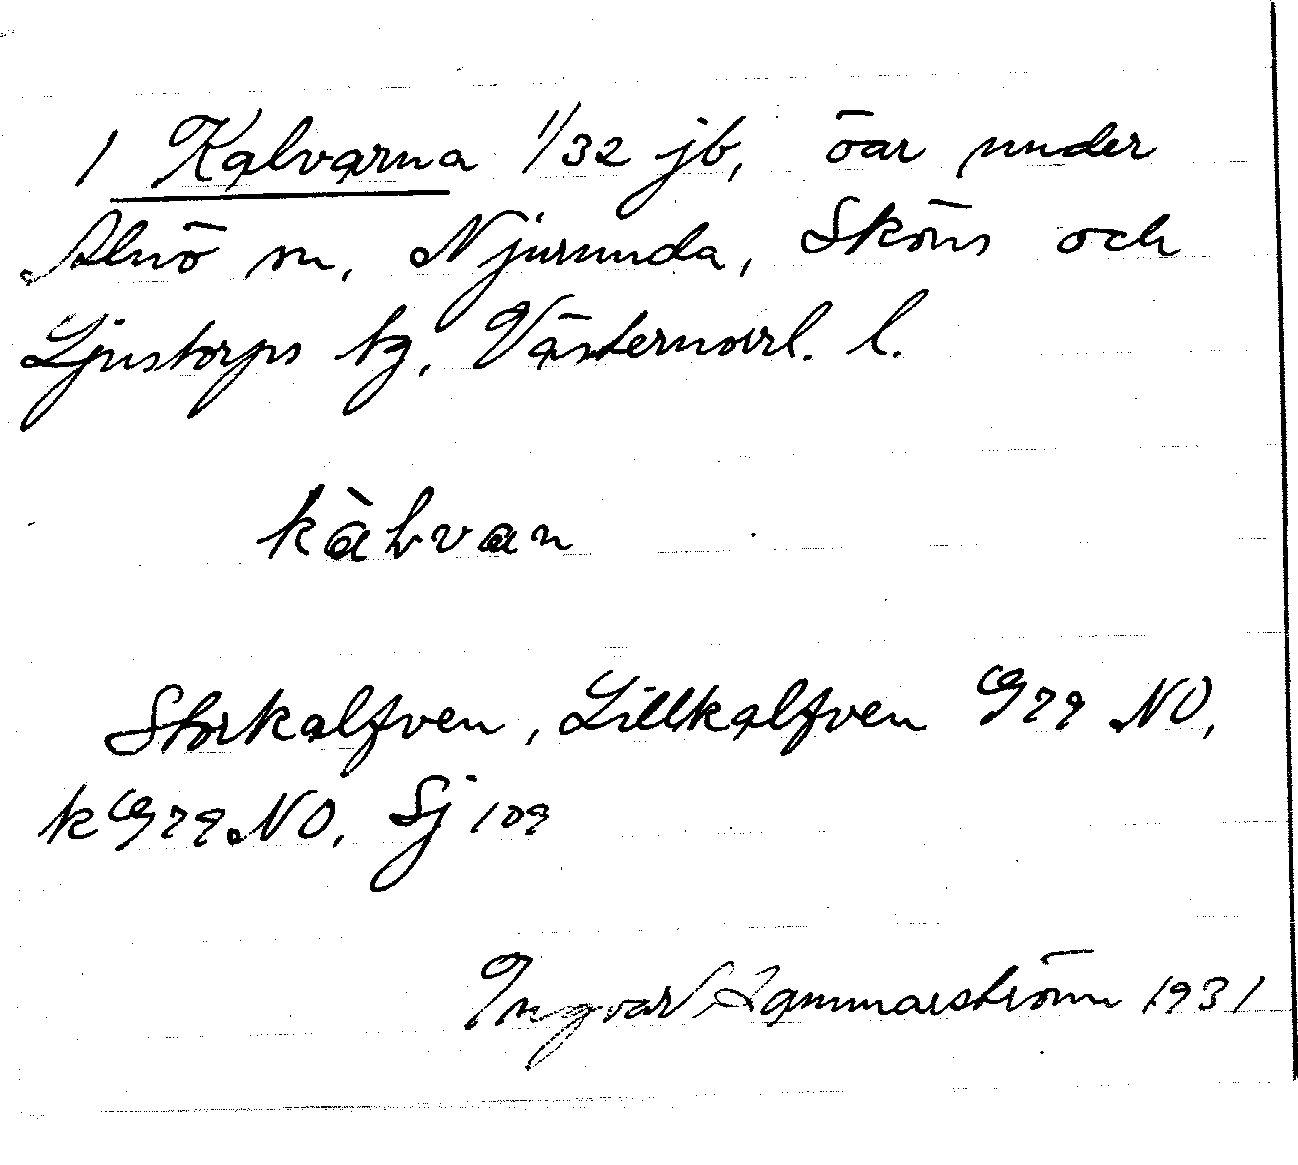 1 Kalvarna 1/32 jb, öar under
Alnö sn, Njurunda, Sköns och
Ljustorps tg, Västernorrl. l.
kàlvan
Storkalfven, Lillkalfven G 79 NO,
k G 79 NO, Sj 109
Ingvar Hammarström 1931